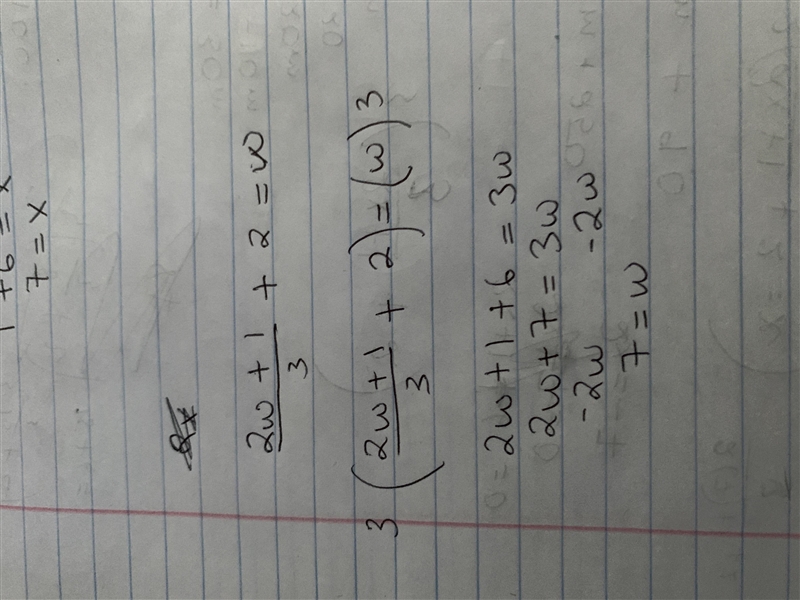 1 + 6 = x
7 = x
2x
2w + 1 / 3 + 2 = w
3 ( 2w + 1 / 3 + 2 ) = (w) 3
2w + 1 + 6 = 3w
2w + 7 = 3w
-2w -2w
7 = w